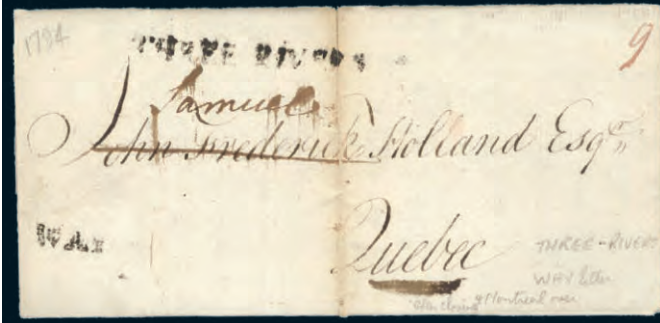 1794
9
THREE RIVERS
Samuel
John Frederick Holland Esqr
WAY
Quebec
THREE-RIVERS
WAY letter
Montreal